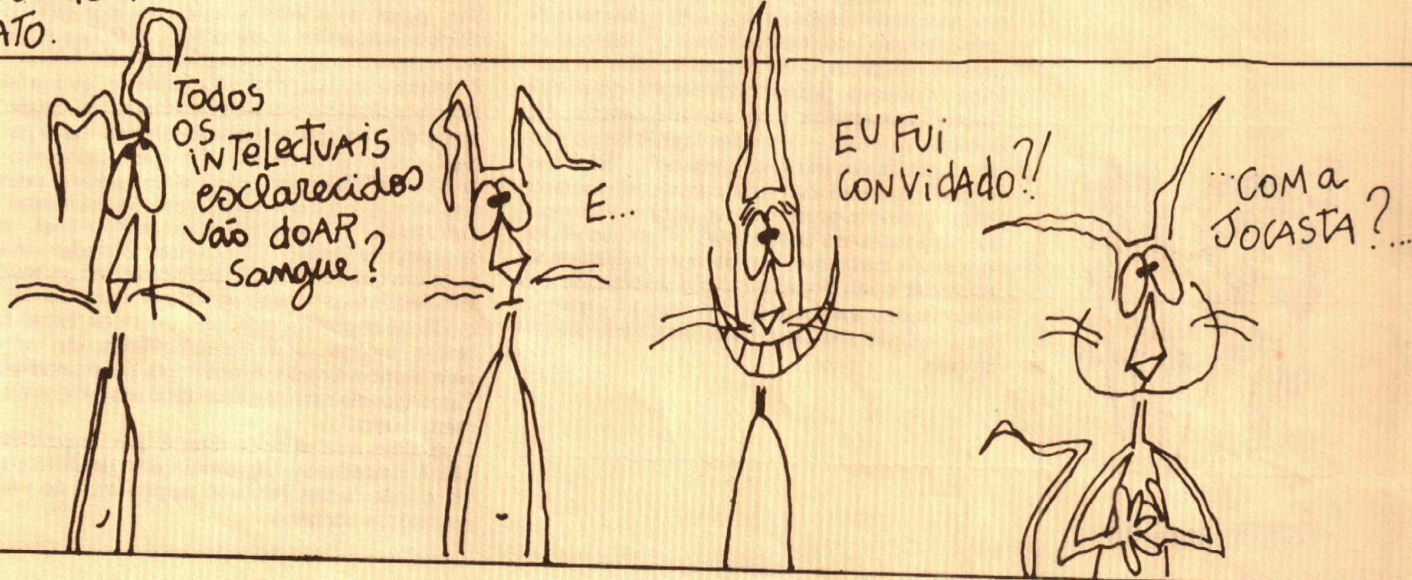 ATO.
Todos
os
iNTelecTUAis
esclarecidos
vão doAR
sangue?
E...
EU FUI
CONVidAdo?!
...COM a
JOCASTA?...